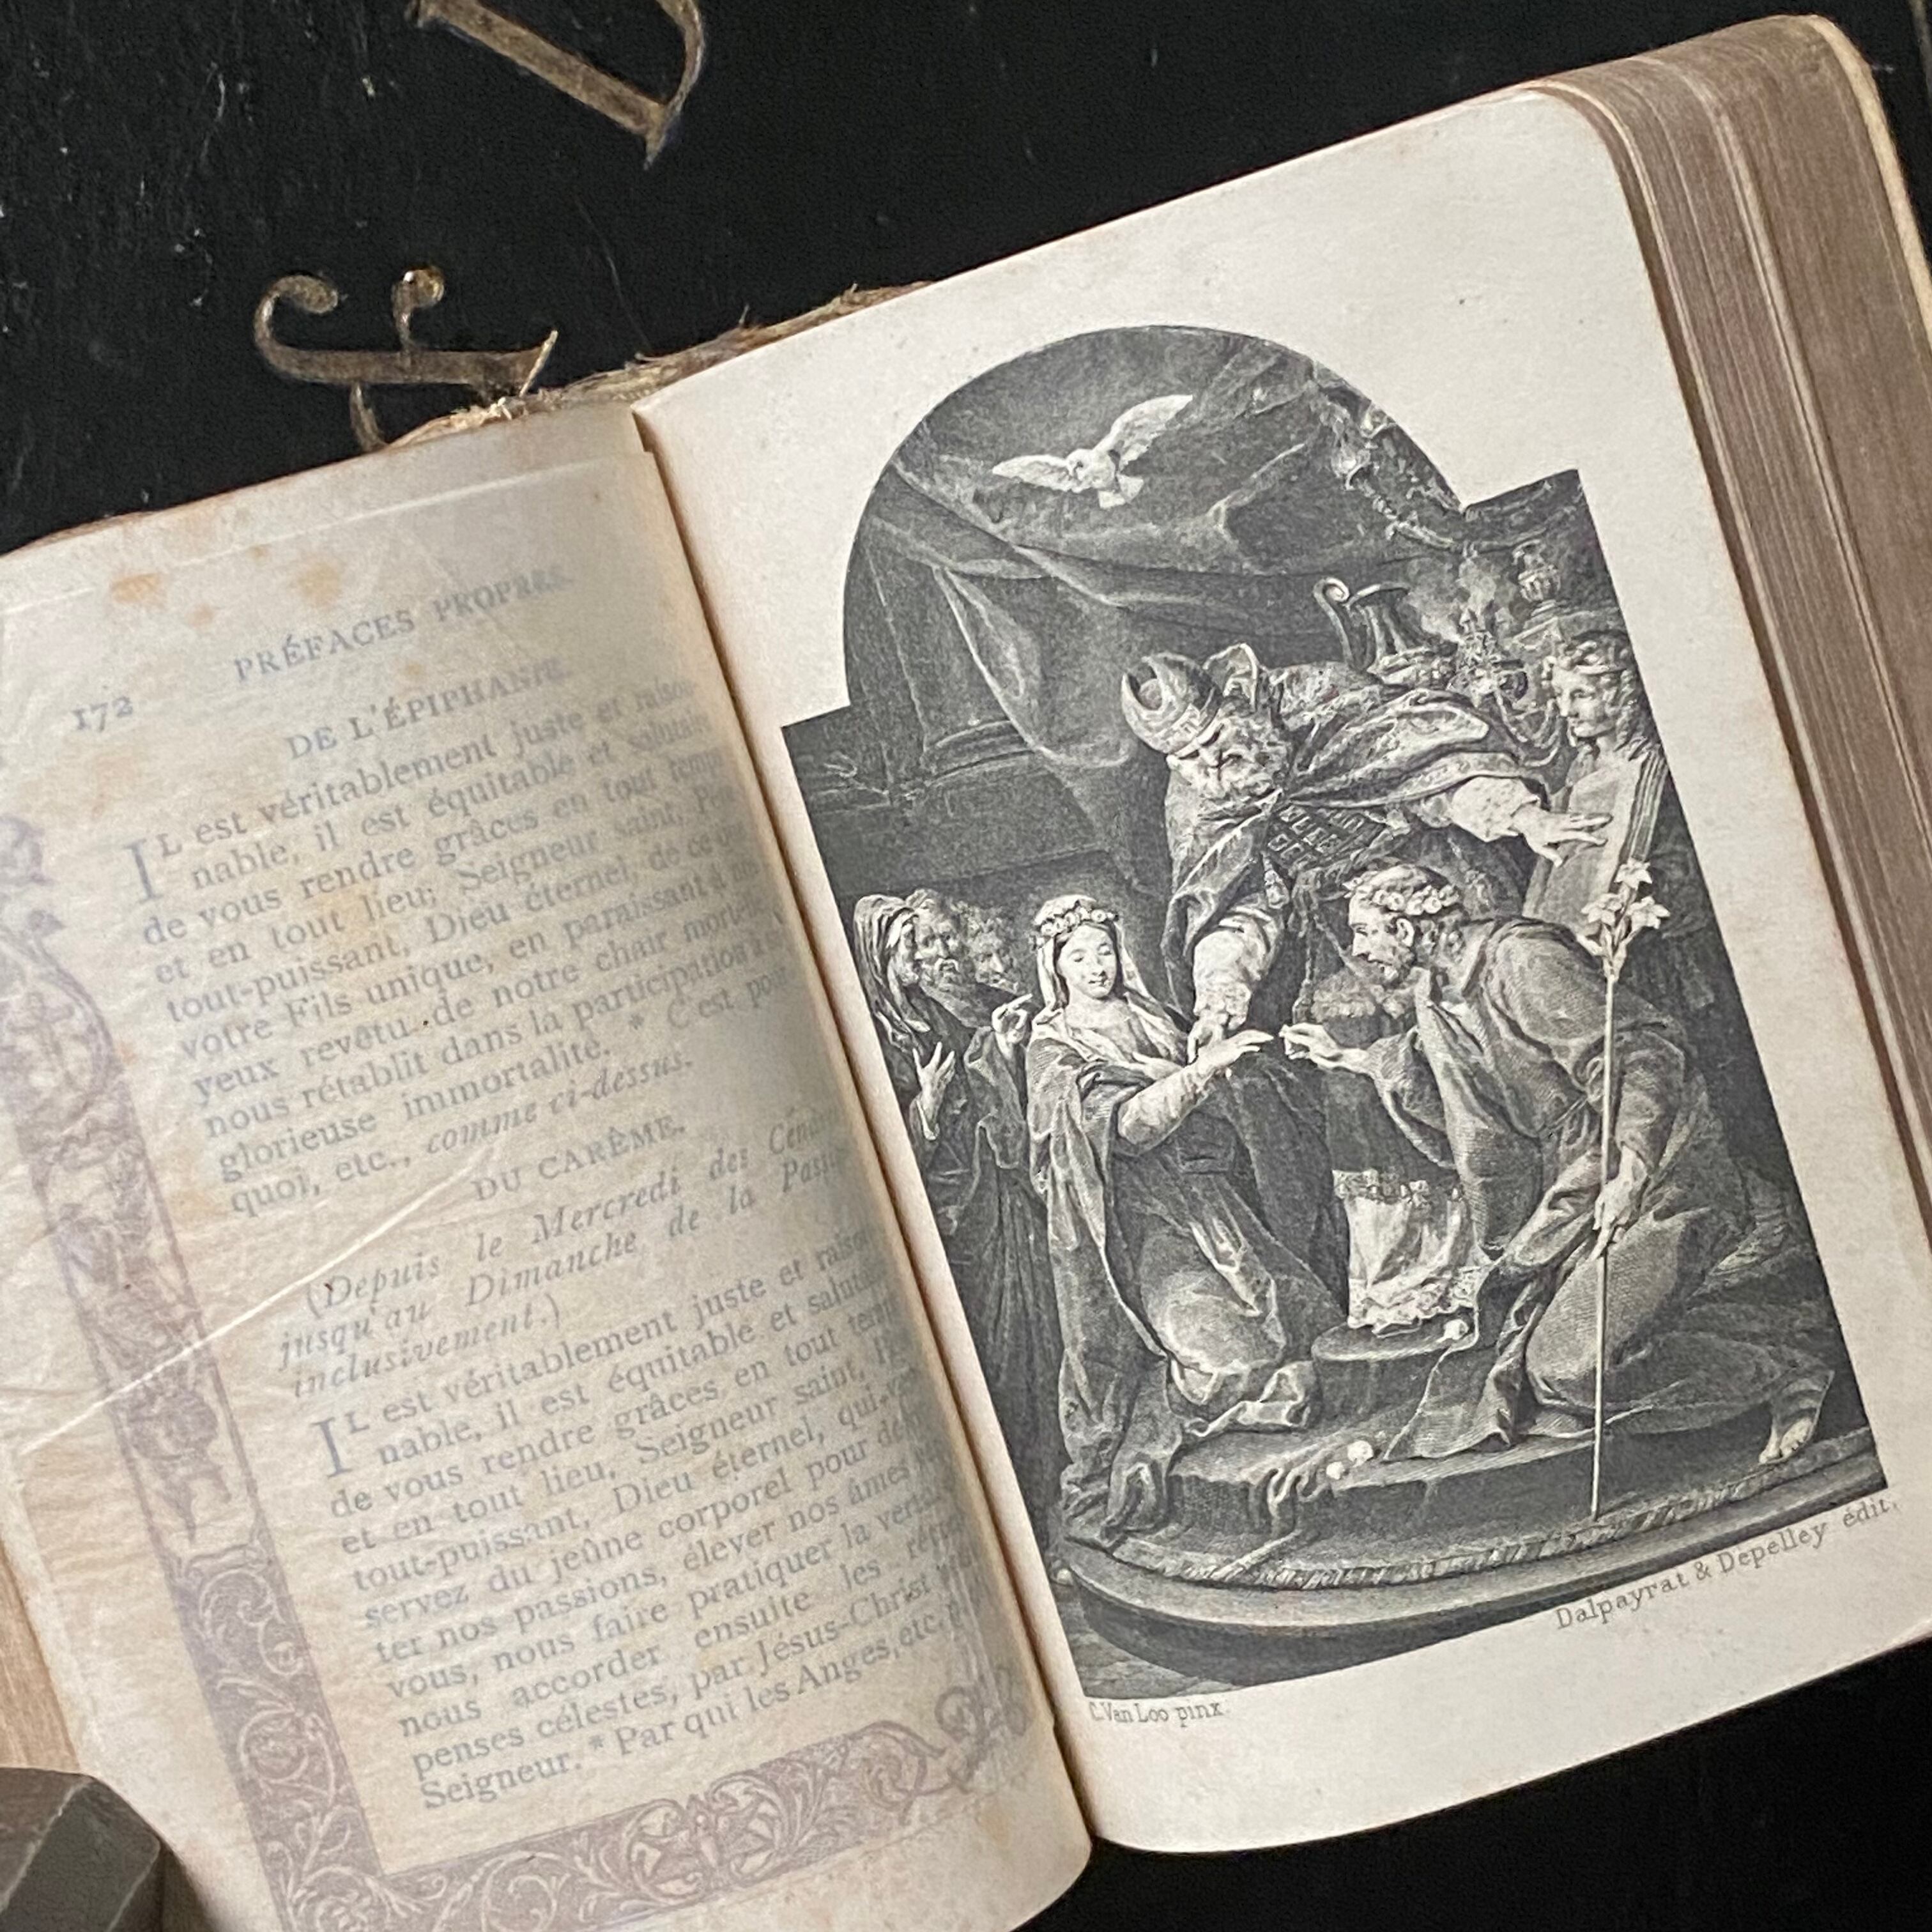 172
PRÉFACES PROPRES.
DE L'ÉPIPHANIE.
IL est véritablement juste et raison-
nable, il est équitable et salutaire
de vous rendre grâces en tout temps
et en tout lieu; Seigneur saint, Père
tout-puissant, Dieu éternel, de ce que
votre Fils unique, en paraissant à
yeux revêtu de notre chair mortelle
nous rétablit dans la participation
glorieuse immortalité. * C'est pour
quoi, etc., comme ci-dessus.
DU CARÊME.
(Depuis le Mercredi des Cendres
jusqu'au Dimanche de la Passion
inclusivement.)
IL est véritablement juste et raison
nable, il est équitable et salutaire
de vous rendre grâces en tout temps
et en tout lieu, Seigneur saint,
tout-puissant, Dieu éternel, qui vous
servez du jeûne corporel pour domp
ter nos passions, élever nos âmes
vous, nous faire pratiquer la vertu
nous accorder ensuite les récom
penses célestes, par Jésus-Christ
Seigneur. * Par qui les Anges, etc.
C. Van Loo pinx.
Dalpayrat & Depelley édit.